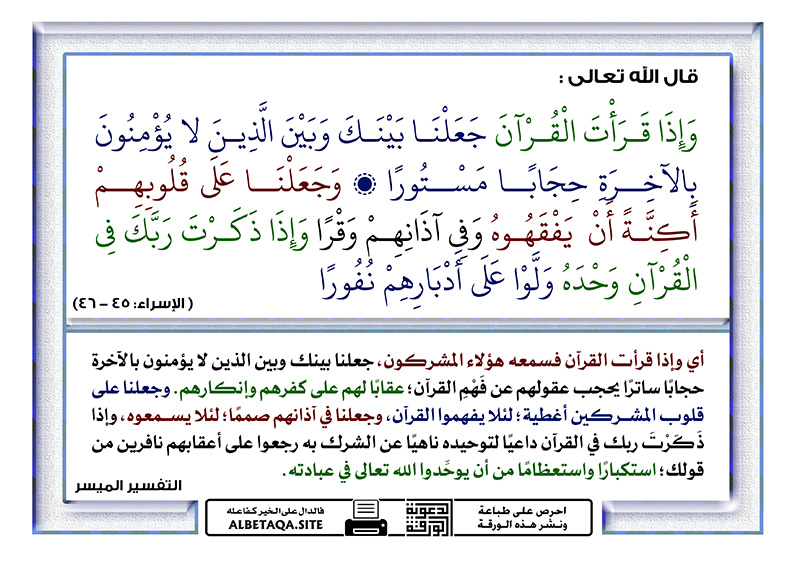 قال الله تعالى :
وَإِذَا قَرَأْتَ الْقُرْآنَ جَعَلْنَا بَيْنَكَ وَبَيْنَ الَّذِينَ لا يُؤْمِنُونَ
بِالآخِرَةِ حِجَابًا مَسْتُورًا ۝ وَجَعَلْنَا عَلَى قُلُوبِهِمْ
أَكِنَّةً أَنْ يَفْقَهُوهُ وَفِي آذَانِهِمْ وَقْرًا وَإِذَا ذَكَرْتَ رَبَّكَ فِي
الْقُرْآنِ وَحْدَهُ وَلَّوْا عَلَى أَدْبَارِهِمْ نُفُورًا
( الإسراء: ٤٥ – ٤٦)
أي وإذا قرأت القرآن فسمعه هؤلاء المشركون، جعلنا بينك وبين الذين لا يؤمنون بالآخرة
حجابًا ساترًا يحجب عقولهم عن فَهْمِ القرآن؛ عقابًا لهم على كفرهم وإنكارهم. وجعلنا على
قلوب المشركين أغطية؛ لئلا يفهموا القرآن، وجعلنا في آذانهم صممًا؛ لئلا يسمعوه، وإذا
ذَكَرْتَ ربك في القرآن داعيًا لتوحيده ناهيًا عن الشرك به رجعوا على أعقابهم نافرين من
قولك؛ استكبارًا واستعظامًا من أن يوحِّدوا الله تعالى في عبادته.
التفسير الميسر
احرص على طباعة
ونشر هذه الورقة
الدعوية
الورقة
فالدال على الخير كفاعله
ALBETAQA.SITE